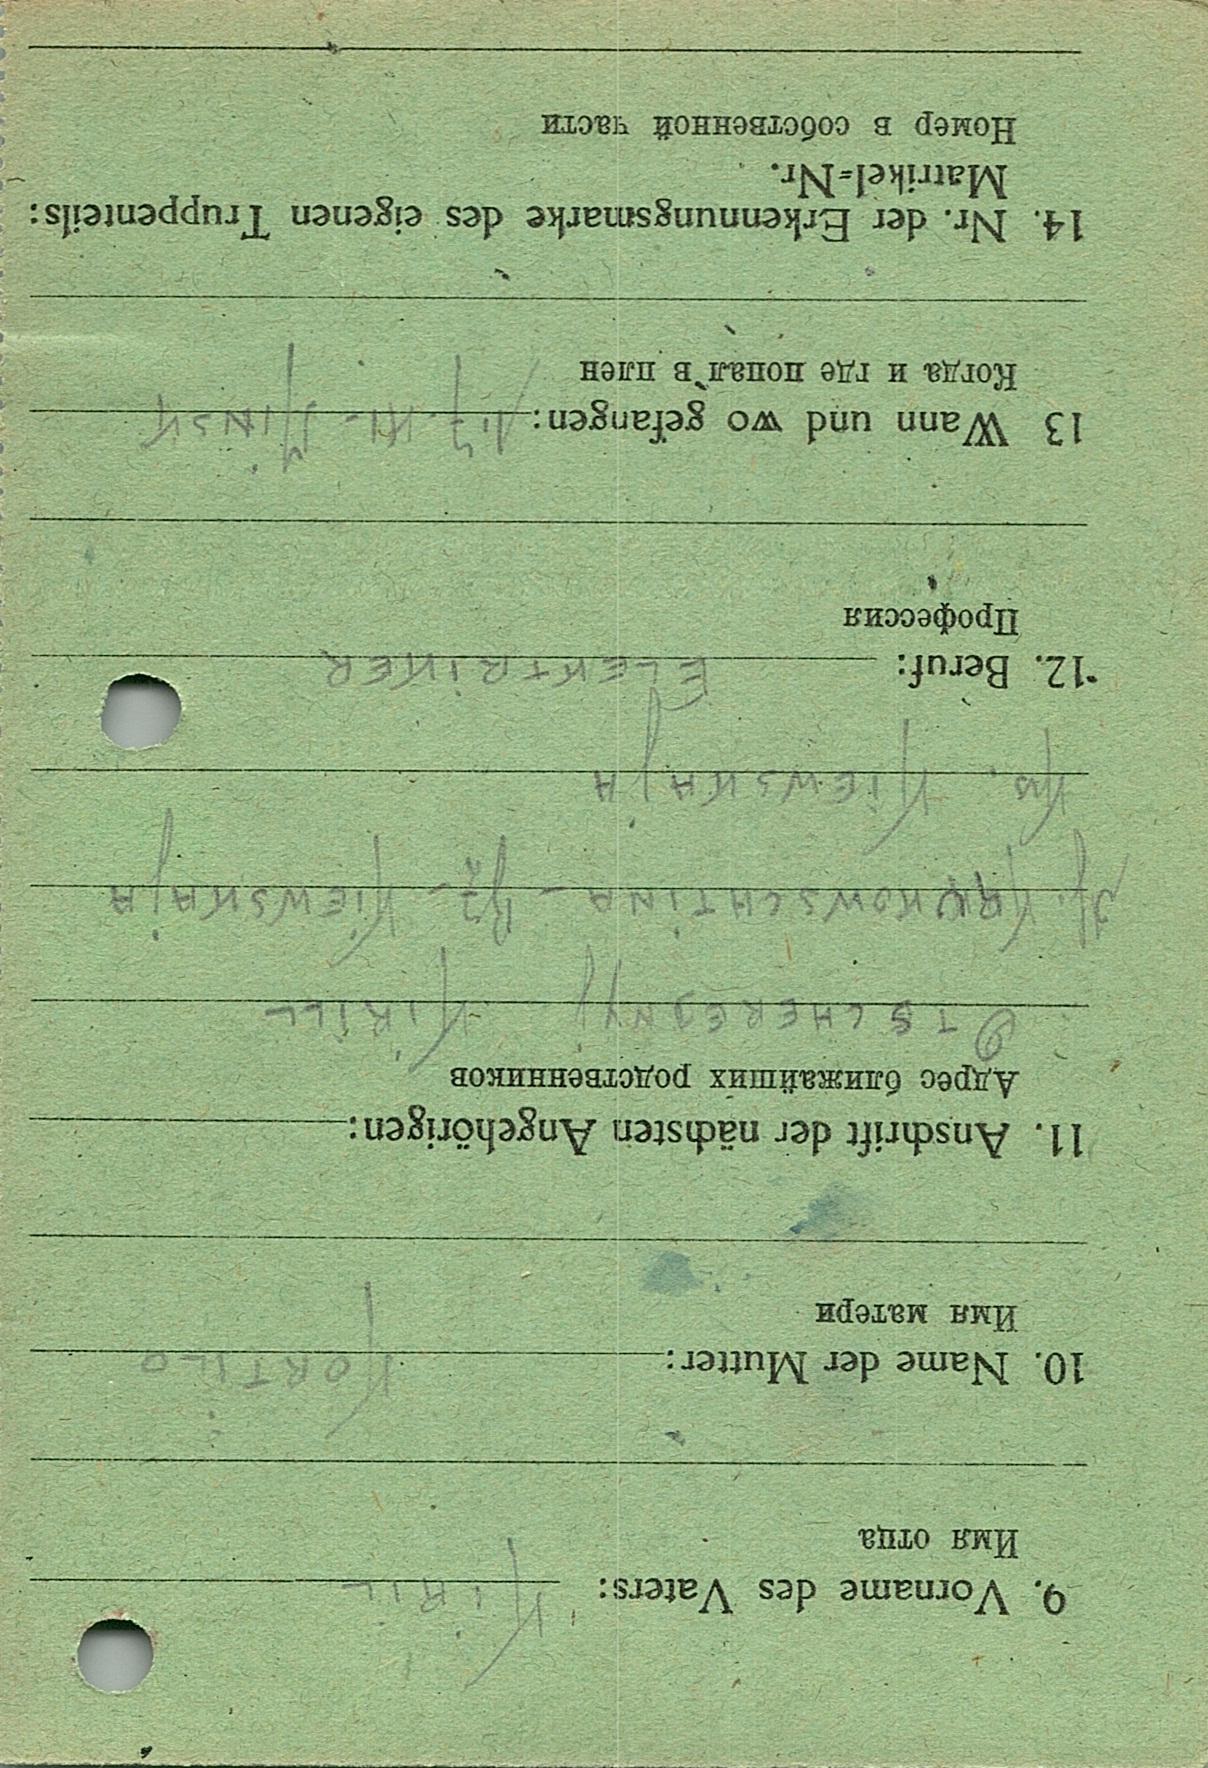 9. Vorname des Vaters: KiRiL
Имя отца
10. Name der Mutter: KORTiLO
Имя матери
11. Anschrift der nächsten Angehörigen:
Адрес ближайших родственников
OTSCHEREDNYJ KiRiLL
KiEWSKAJA
KiEWSKAJA
12. Beruf: ELEKTRiKER
Профессия
13 Wann und wo gefangen: MiNSK
Когда и где попал в плен
14. Nr. der Erkennungsmarke des eigenen Truppenteils:
Matrikel=Nr.
Номер в собственной части